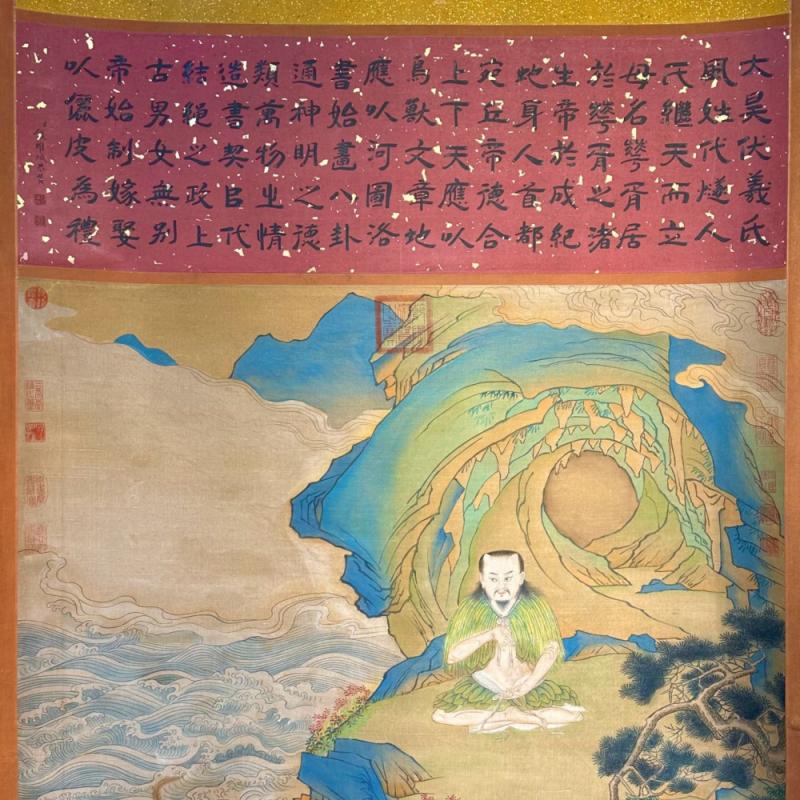 大昊伏羲氏
風姓代燧人
氏繼天而立
母名華胥居
於華胥之渚
生帝於成紀
蛇身人首都
宛丘帝德合
上下天應以
鳥獸文章地
應以河圖洛
書始畫八卦
通神明之德
類萬物之情
造書契臣代
結繩之政上
古男女無別
帝始制嫁娶
以儷皮為禮